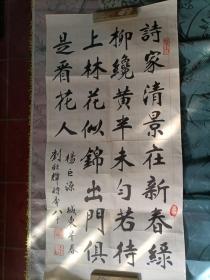 詩家清景在新春綠
柳纔黄半未勻若待
上林花似錦出門俱
是看花人
楊巨源 城東早春